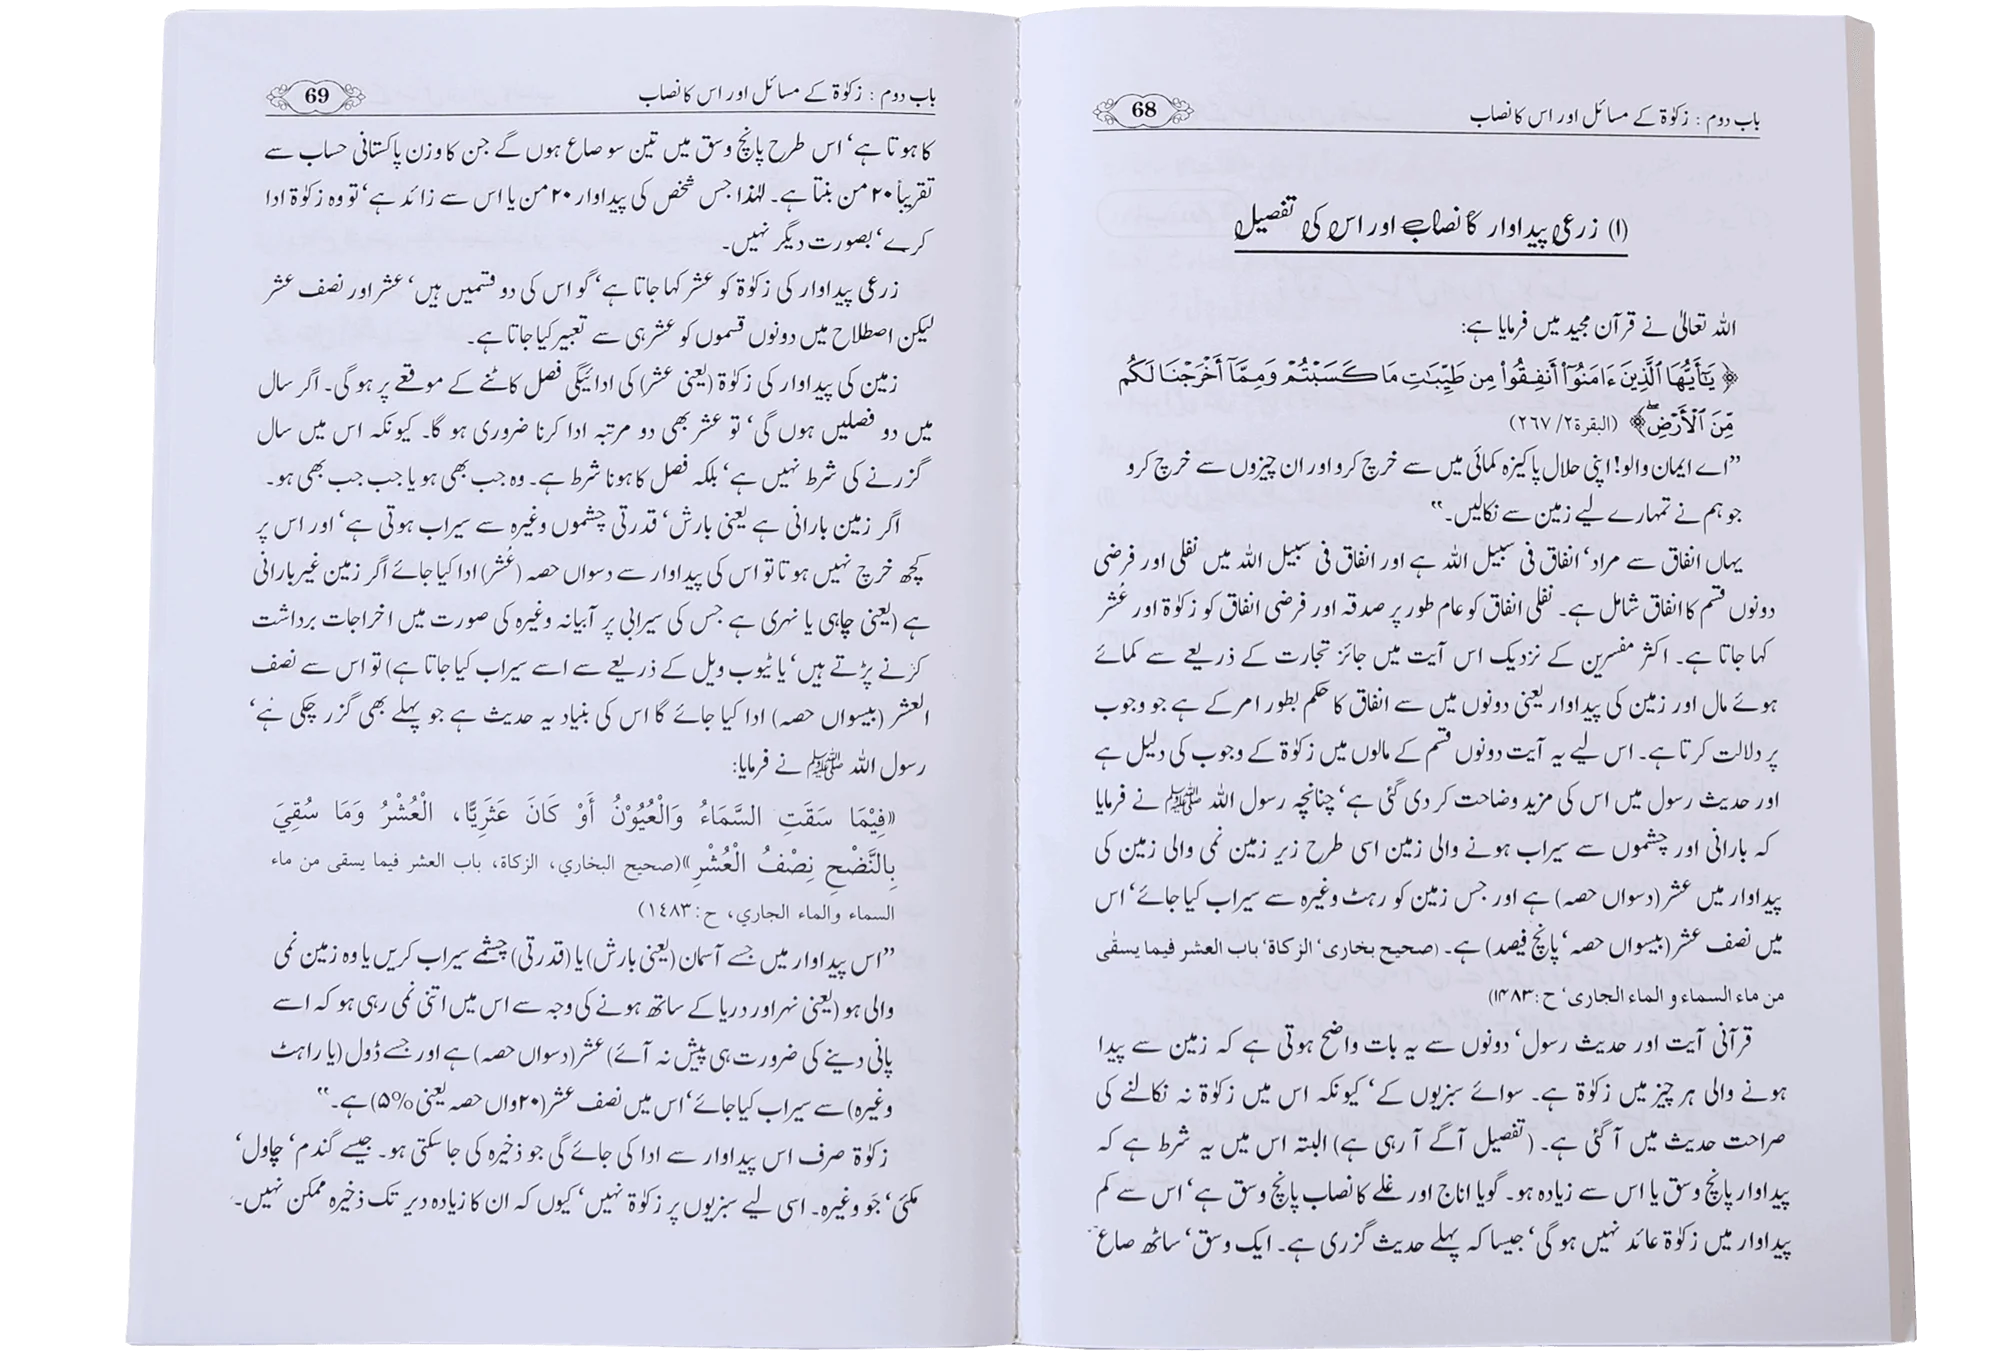 باب دوم : زکوٰۃ کے مسائل اور اس کا نصاب 68
(۱) زرعی پیداوار کا نصاب اور اس کی تفصیل
اللہ تعالیٰ نے قرآن مجید میں فرمایا ہے:
﴿ يَـٰٓأَيُّهَا ٱلَّذِينَ ءَامَنُوٓا۟ أَنفِقُوا۟ مِن طَيِّبَـٰتِ مَا كَسَبْتُمْ وَمِمَّآ أَخْرَجْنَا لَكُم
مِّنَ ٱلْأَرْضِ ۖ﴾ (البقرة۲/ ۲٦۷)
”اے ایمان والو! اپنی حلال پاکیزہ کمائی میں سے خرچ کرو اور ان چیزوں سے خرچ کرو
جو ہم نے تمہارے لیے زمین سے نکالیں۔“
یہاں انفاق سے مراد‘ انفاق فی سبیل اللہ ہے اور انفاق فی سبیل اللہ میں نفلی اور فرضی
دونوں قسم کا انفاق شامل ہے۔ نفلی انفاق کو عام طور پر صدقہ اور فرضی انفاق کو زکوٰۃ اور عُشر
کہا جاتا ہے۔ اکثر مفسرین کے نزدیک اس آیت میں جائز تجارت کے ذریعے سے کمائے
ہوئے مال اور زمین کی پیداوار یعنی دونوں میں سے انفاق کا حکم بطور امر کے ہے جو وجوب
پر دلالت کرتا ہے۔ اس لیے یہ آیت دونوں قسم کے مالوں میں زکوٰۃ کے وجوب کی دلیل ہے
اور حدیث رسول میں اس کی مزید وضاحت کر دی گئی ہے‘ چنانچہ رسول اللہ ﷺ نے فرمایا
کہ بارانی اور چشموں سے سیراب ہونے والی زمین اسی طرح زیرِ زمین نمی والی زمین کی
پیداوار میں عشر (دسواں حصہ) ہے اور جس زمین کو رہٹ وغیرہ سے سیراب کیا جائے‘ اس
میں نصف عشر (بیسواں حصہ‘ پانچ فیصد) ہے۔ (صحیح بخاری‘ الزکاۃ‘ باب العشر فیما یسقٰی
من ماء السماء و الماء الجاری‘ ح:۱۴۸۳)
قرآنی آیت اور حدیث رسول‘ دونوں سے یہ بات واضح ہوتی ہے کہ زمین سے پیدا
ہونے والی ہر چیز میں زکوٰۃ ہے۔ سوائے سبزیوں کے‘ کیونکہ اس میں زکوٰۃ نہ نکالنے کی
صراحت حدیث میں آگئی ہے۔ (تفصیل آگے آ رہی ہے) البتہ اس میں یہ شرط ہے کہ
پیداوار پانچ وسق یا اس سے زیادہ ہو۔ گویا اناج اور غلے کا نصاب پانچ وسق ہے‘ اس سے کم
پیداوار میں زکوٰۃ عائد نہیں ہو گی‘ جیسا کہ پہلے حدیث گزری ہے۔ ایک وسق‘ ساٹھ صاع
باب دوم : زکوٰۃ کے مسائل اور اس کا نصاب 69
کا ہوتا ہے‘ اس طرح پانچ وسق میں تین سو صاع ہوں گے جن کا وزن پاکستانی حساب سے
تقریباً ۲۰ من بنتا ہے۔ لہٰذا جس شخص کی پیداوار ۲۰ من یا اس سے زائد ہے‘ تو وہ زکوٰۃ ادا
کرے‘ بصورت دیگر نہیں۔
زرعی پیداوار کی زکوٰۃ کو عشر کہا جاتا ہے‘ گو اس کی دو قسمیں ہیں‘ عشر اور نصف عشر
لیکن اصطلاح میں دونوں قسموں کو عشر ہی سے تعبیر کیا جاتا ہے۔
زمین کی پیداوار کی زکوٰۃ (یعنی عشر) کی ادائیگی فصل کاٹنے کے موقعے پر ہو گی۔ اگر سال
میں دو فصلیں ہوں گی‘ تو عشر بھی دو مرتبہ ادا کرنا ضروری ہو گا۔ کیونکہ اس میں سال
گزرنے کی شرط نہیں ہے‘ بلکہ فصل کا ہونا شرط ہے۔ وہ جب بھی ہو یا جب جب بھی ہو۔
اگر زمین بارانی ہے یعنی بارش‘ قدرتی چشموں وغیرہ سے سیراب ہوتی ہے‘ اور اس پر
کچھ خرچ نہیں ہوتا تو اس کی پیداوار سے دسواں حصہ (عُشر) ادا کیا جائے اگر زمین غیر بارانی
ہے (یعنی چاہی یا نہری ہے جس کی سیرابی پر آبیانہ وغیرہ کی صورت میں اخراجات برداشت
کرنے پڑتے ہیں‘ یا ٹیوب ویل کے ذریعے سے اسے سیراب کیا جاتا ہے) تو اس سے نصف
العشر (بیسواں حصہ) ادا کیا جائے گا اس کی بنیاد یہ حدیث ہے جو پہلے بھی گزر چکی ہے‘
رسول اللہ ﷺ نے فرمایا:
«فِيْمَا سَقَتِ السَّمَاءُ وَالْعُيُوْنُ أَوْ كَانَ عَثَرِيًّا، الْعُشْرُ وَمَا سُقِيَ
بِالنَّضْحِ نِصْفُ الْعُشْرِ»(صحيح البخاري، الزكاة، باب العشر فيما يسقى من ماء
السماء والماء الجاري، ح:١٤٨٣)
”اس پیداوار میں جسے آسمان (یعنی بارش) یا (قدرتی) چشمے سیراب کریں یا وہ زمین نمی
والی ہو (یعنی نہر اور دریا کے ساتھ ہونے کی وجہ سے اس میں اتنی نمی رہی ہو کہ اسے
پانی دینے کی ضرورت ہی پیش نہ آئے) عشر (دسواں حصہ) ہے اور جسے ڈول (یا راہٹ
وغیرہ) سے سیراب کیا جائے‘ اس میں نصف عشر (۲۰واں حصہ یعنی ۵%) ہے۔“
زکوٰۃ صرف اس پیداوار سے ادا کی جائے گی جو ذخیرہ کی جا سکتی ہو۔ جیسے گندم‘ چاول‘
مکئی‘ جَو وغیرہ۔ اسی لیے سبزیوں پر زکوٰۃ نہیں‘ کیوں کہ ان کا زیادہ دیر تک ذخیرہ ممکن نہیں۔